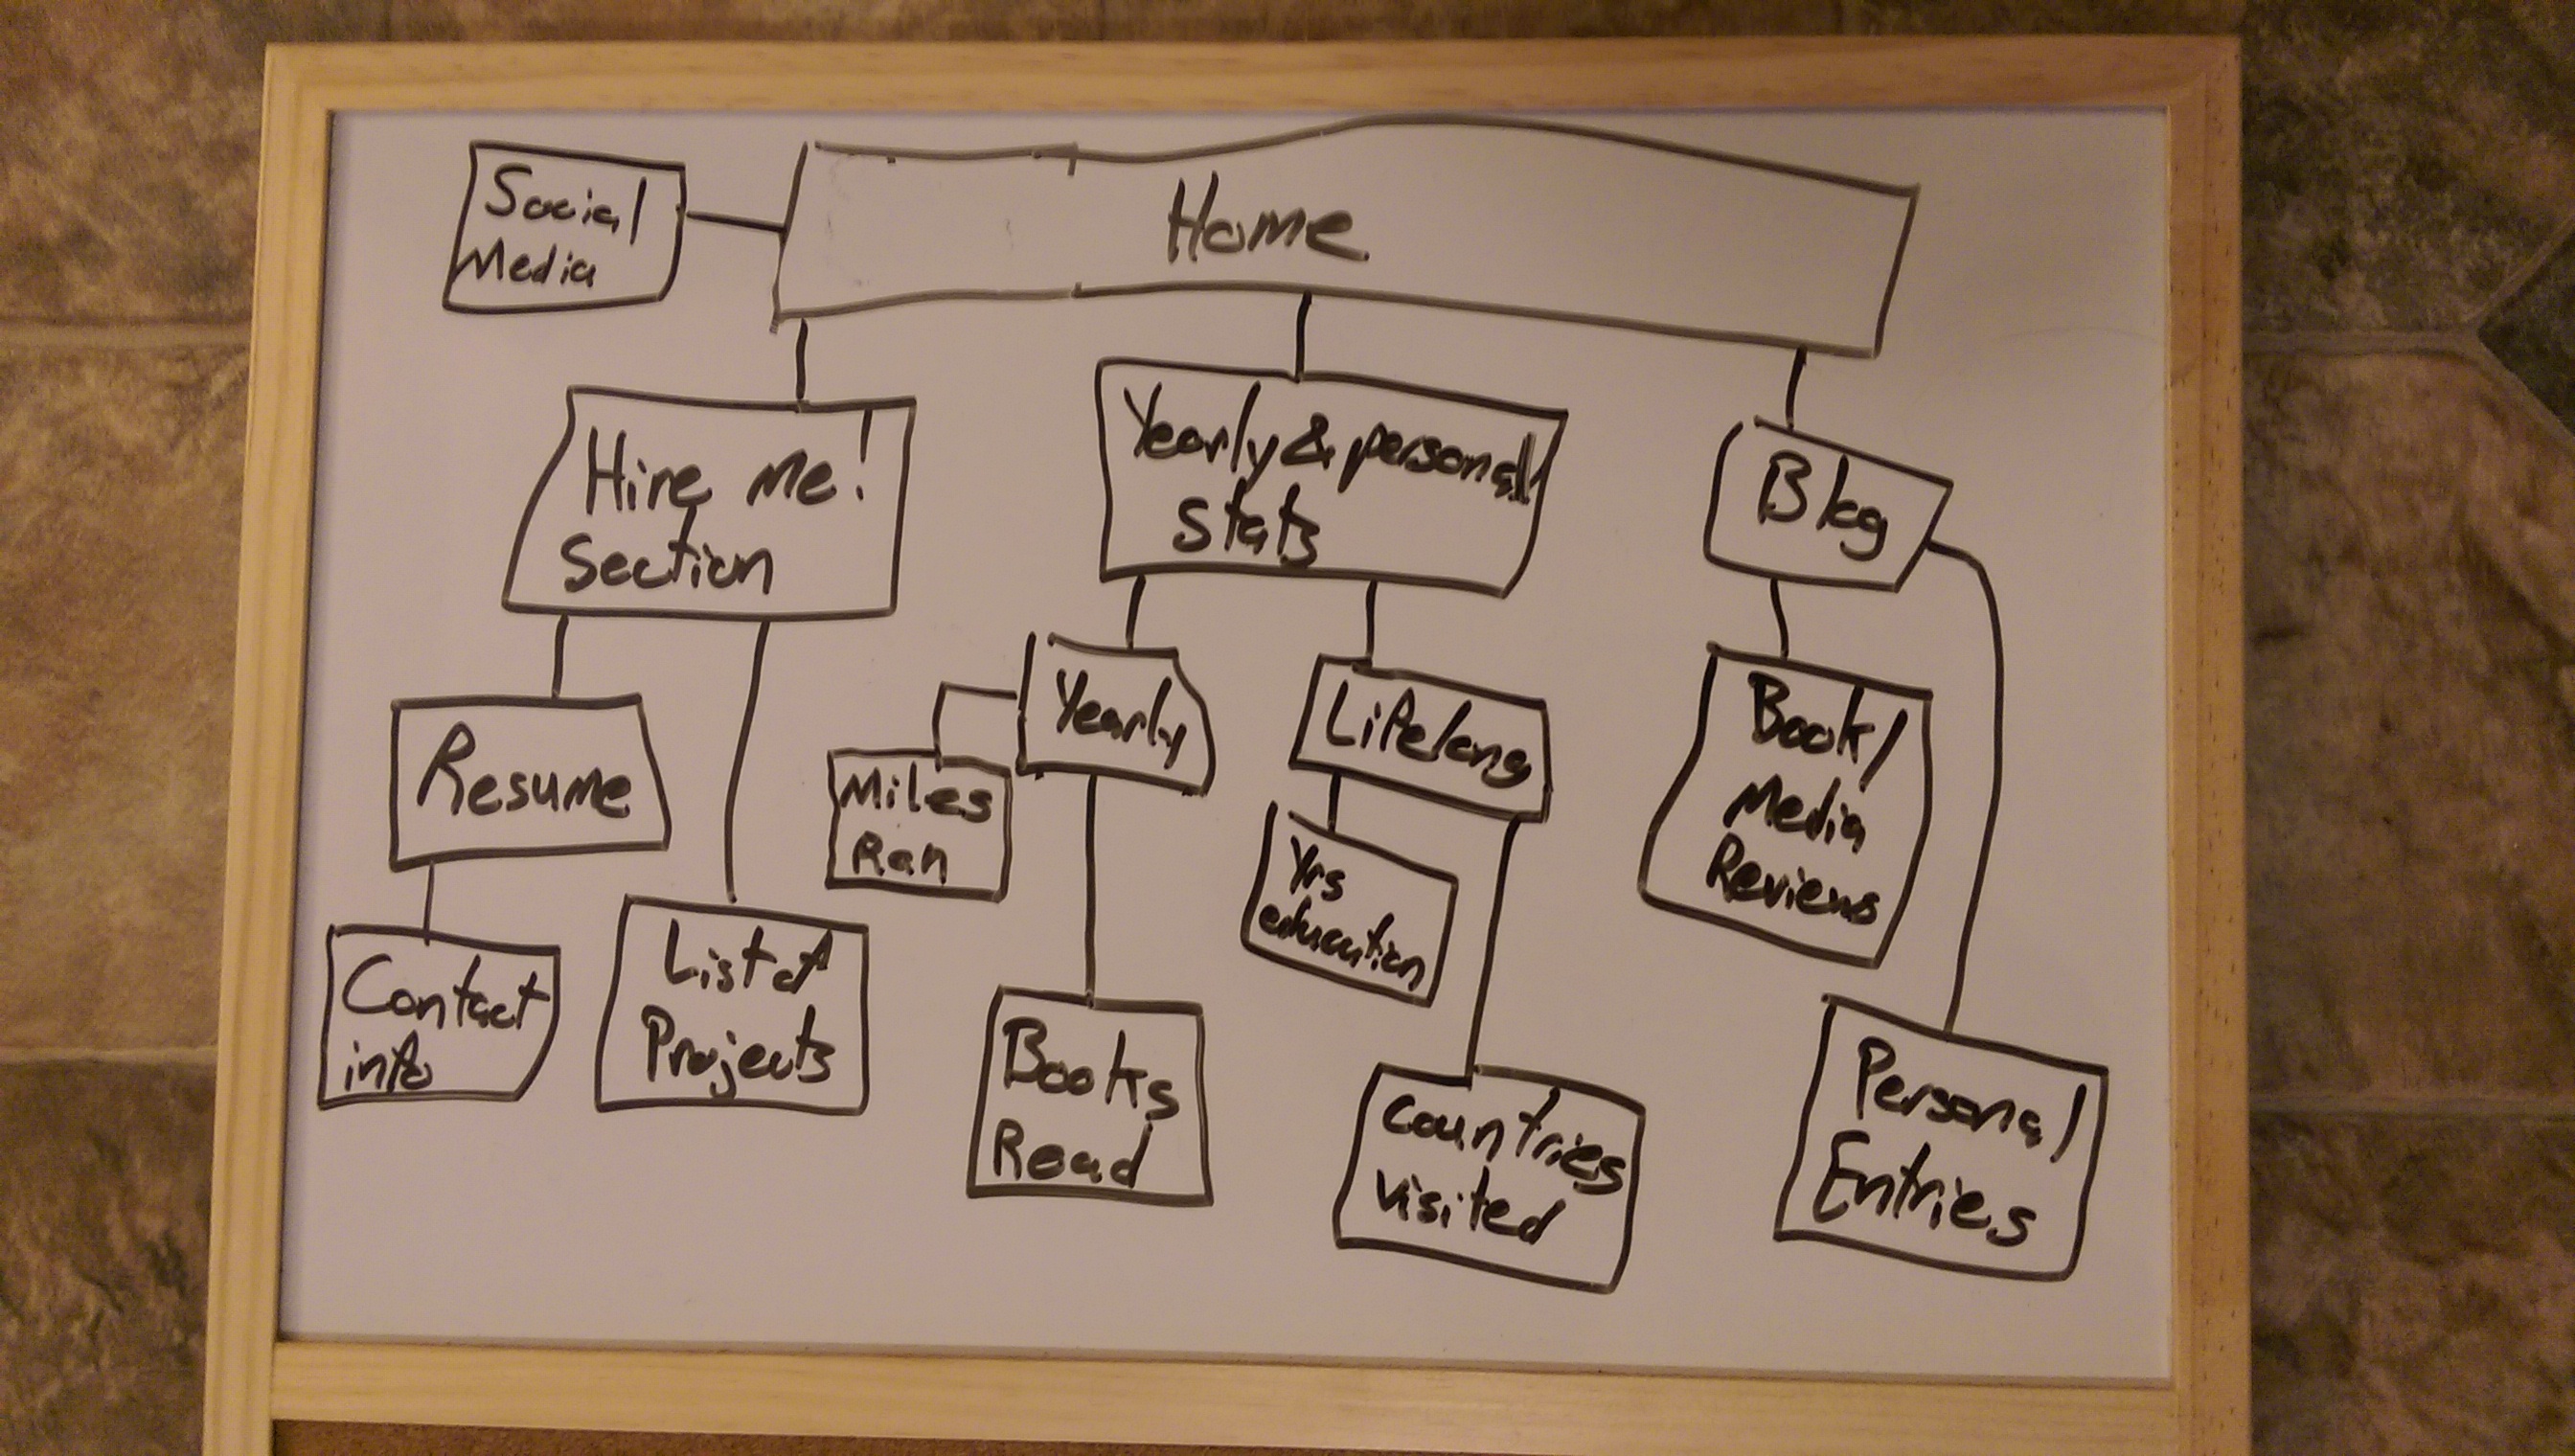 Social
Media
Home
Hire me!
Section
Yearly & personal
Stats
Blog
Resume
Yearly
Lifelong
Book/
Media
Reviews
Miles
Ran
Yrs
education
Contact
info
List of
Projects
Books
Read
Countries
Visited
Personal
Entries